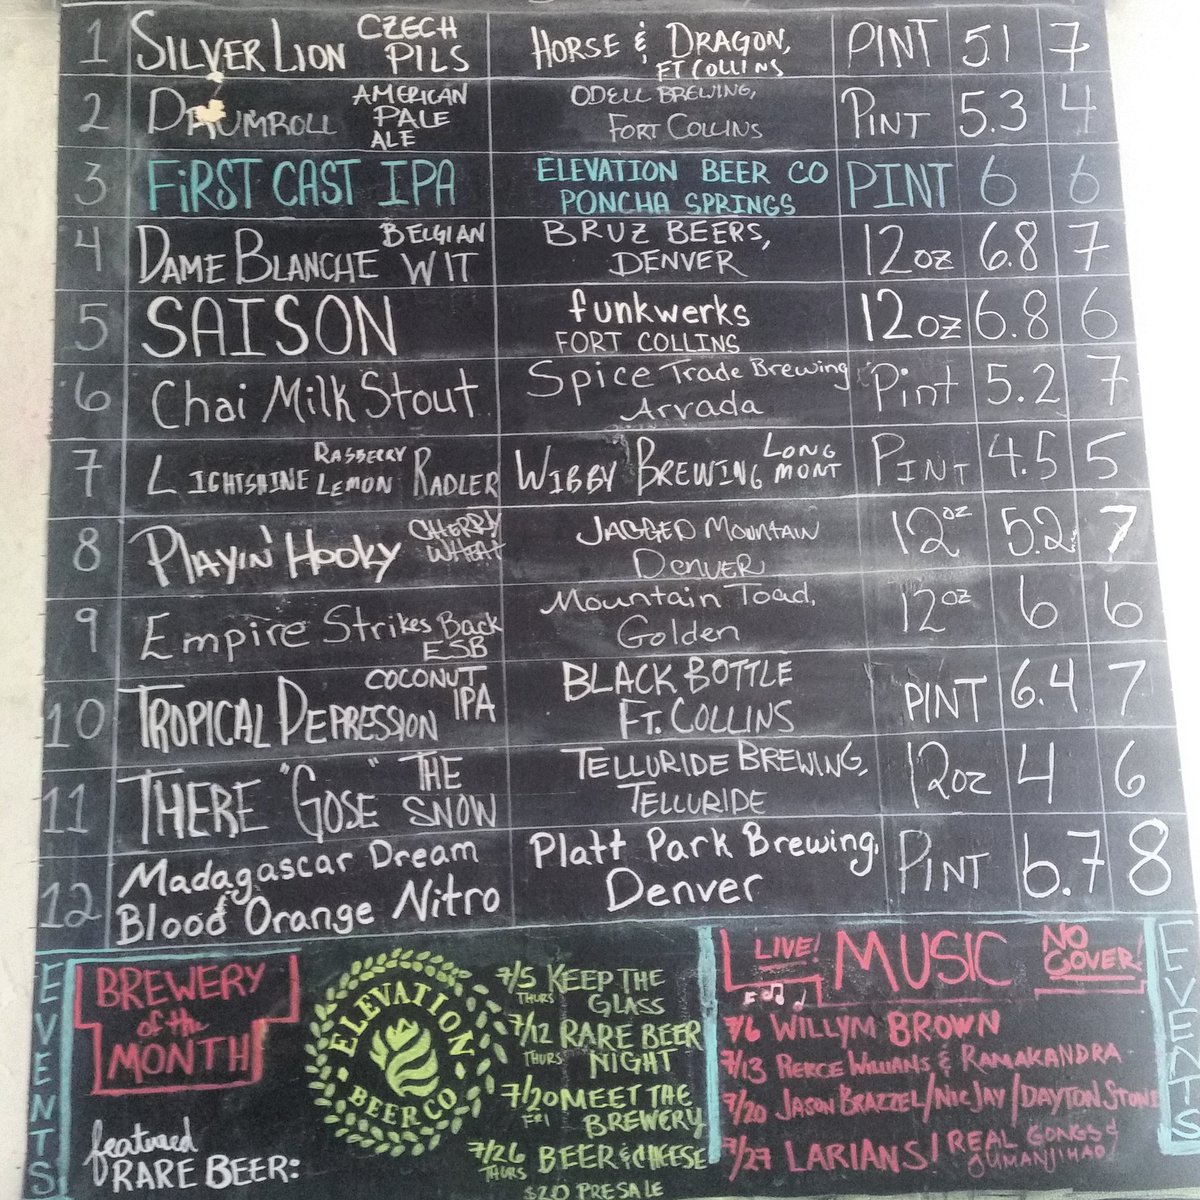 1 SILVER LION CZECH PILS HORSE & DRAGON, FT COLLINS PINT 5.1 7
2 DRUMROLL AMERICAN PALE ALE ODELL BREWING, FORT COLLINS PINT 5.3 4
3 FIRST CAST IPA ELEVATION BEER CO PONCHA SPRINGS PINT 6 6
4 DAME BLANCHE BELGIAN WIT BRUZ BEERS, DENVER 12oz 6.8 7
5 SAISON funkwerks FORT COLLINS 12oz 6.8 6
6 Chai Milk Stout Spice Trade Brewing Arvada Pint 5.2 7
7 LIGHTSHINE RASBERRY LEMON RADLER WIBBY BREWING LONG MONT PINT 4.5 5
8 PLAYIN' HOOKY CHERRY WHEAT JAGGED MOUNTAIN DENVER 12oz 5.2 7
9 Empire Strikes Back ESB Mountain Toad, Golden 12oz 6 6
10 TROPICAL DEPRESSION COCONUT IPA BLACK BOTTLE FT. COLLINS PINT 6.4 7
11 THERE "GOSE" THE SNOW TELLURIDE BREWING, TELLURIDE 12oz 4 6
12 Madagascar Dream Blood Orange Nitro Platt Park Brewing, Denver PINT 6.7 8
EVENTS
BREWERY
of the
MONTH
featured
RARE BEER:
ELEVATION
BEER CO
7/5 THURS KEEP THE
GLASS
7/12 THURS RARE BEER
NIGHT
7/20 FRI MEET THE
BREWERY
7/26 THURS BEER & CHEESE
$20 PRESALE
LIVE! MUSIC NO COVER!
7/6 WILLYM BROWN
7/13 PIERCE WILLIAMS & RAMAKANDRA
7/20 JASON BRAZZEL/NIC JAY/DAYTON STONE
7/27 LARIANS! REAL GONGS &
EVENTS